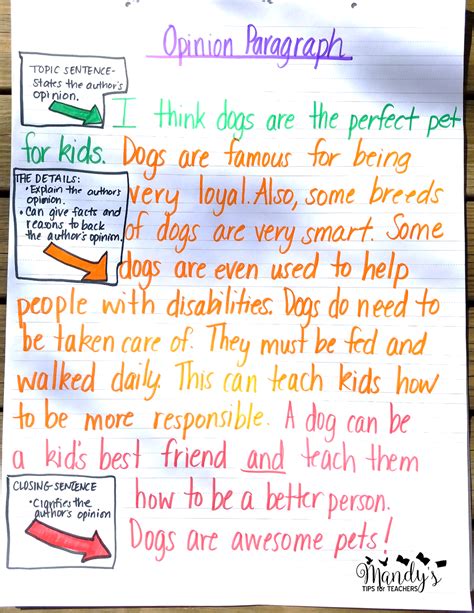 Opinion Paragraph
TOPIC SENTENCE-
States the author's
opinion.
I think dogs are the perfect pet
for kids. Dogs are famous for being
THE DETAILS:
• Explain the author's
opinion.
• Can give facts and
reasons to back
the author's opinion.
very loyal. Also, some breeds
of dogs are very smart. Some
dogs are even used to help
people with disabilities. Dogs do need to
be taken care of. They must be fed and
walked daily. This can teach kids how
to be more responsible. A dog can be
a kid's best friend and teach them
CLOSING SENTENCE
• Clarifies the
author's opinion
how to be a better person.
Dogs are awesome pets!
Mandy's
TIPS for TEACHERS